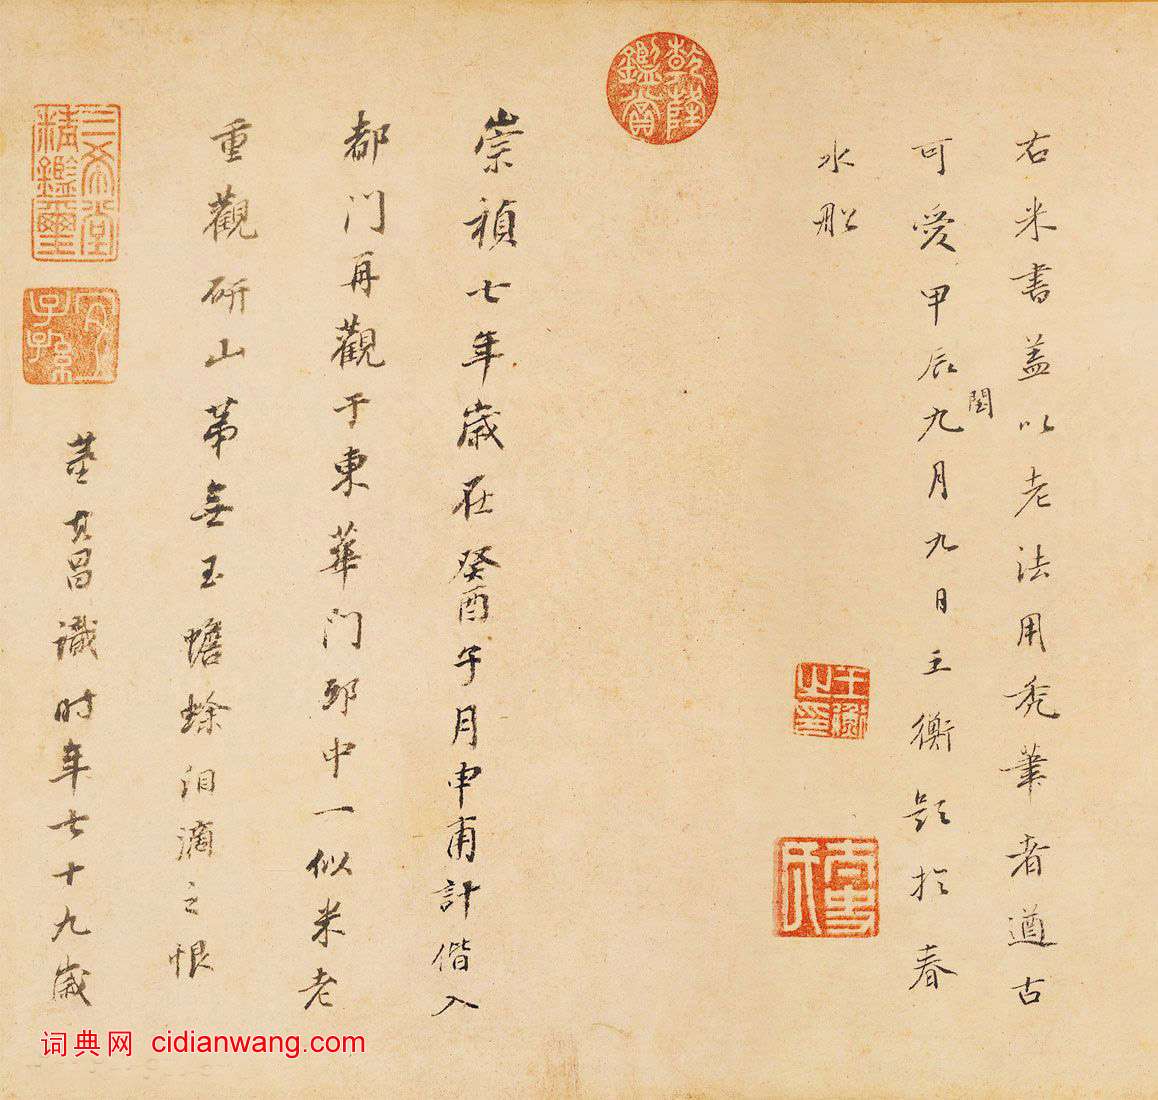 右米書蓋以老法用禿筆者遒古
可愛甲辰閏九月九日王衡題於春
水船
乾隆鑑賞
王衡之印
尚書
崇禎七年歲在癸酉子月申甫計偕入
都門再觀于東華門邸中一似米老
重觀研山第無玉蟾蜍泪滴之恨
董其昌識時年七十九歲
三希堂精鑑璽
宜子孫
词典网 cidianwang.com